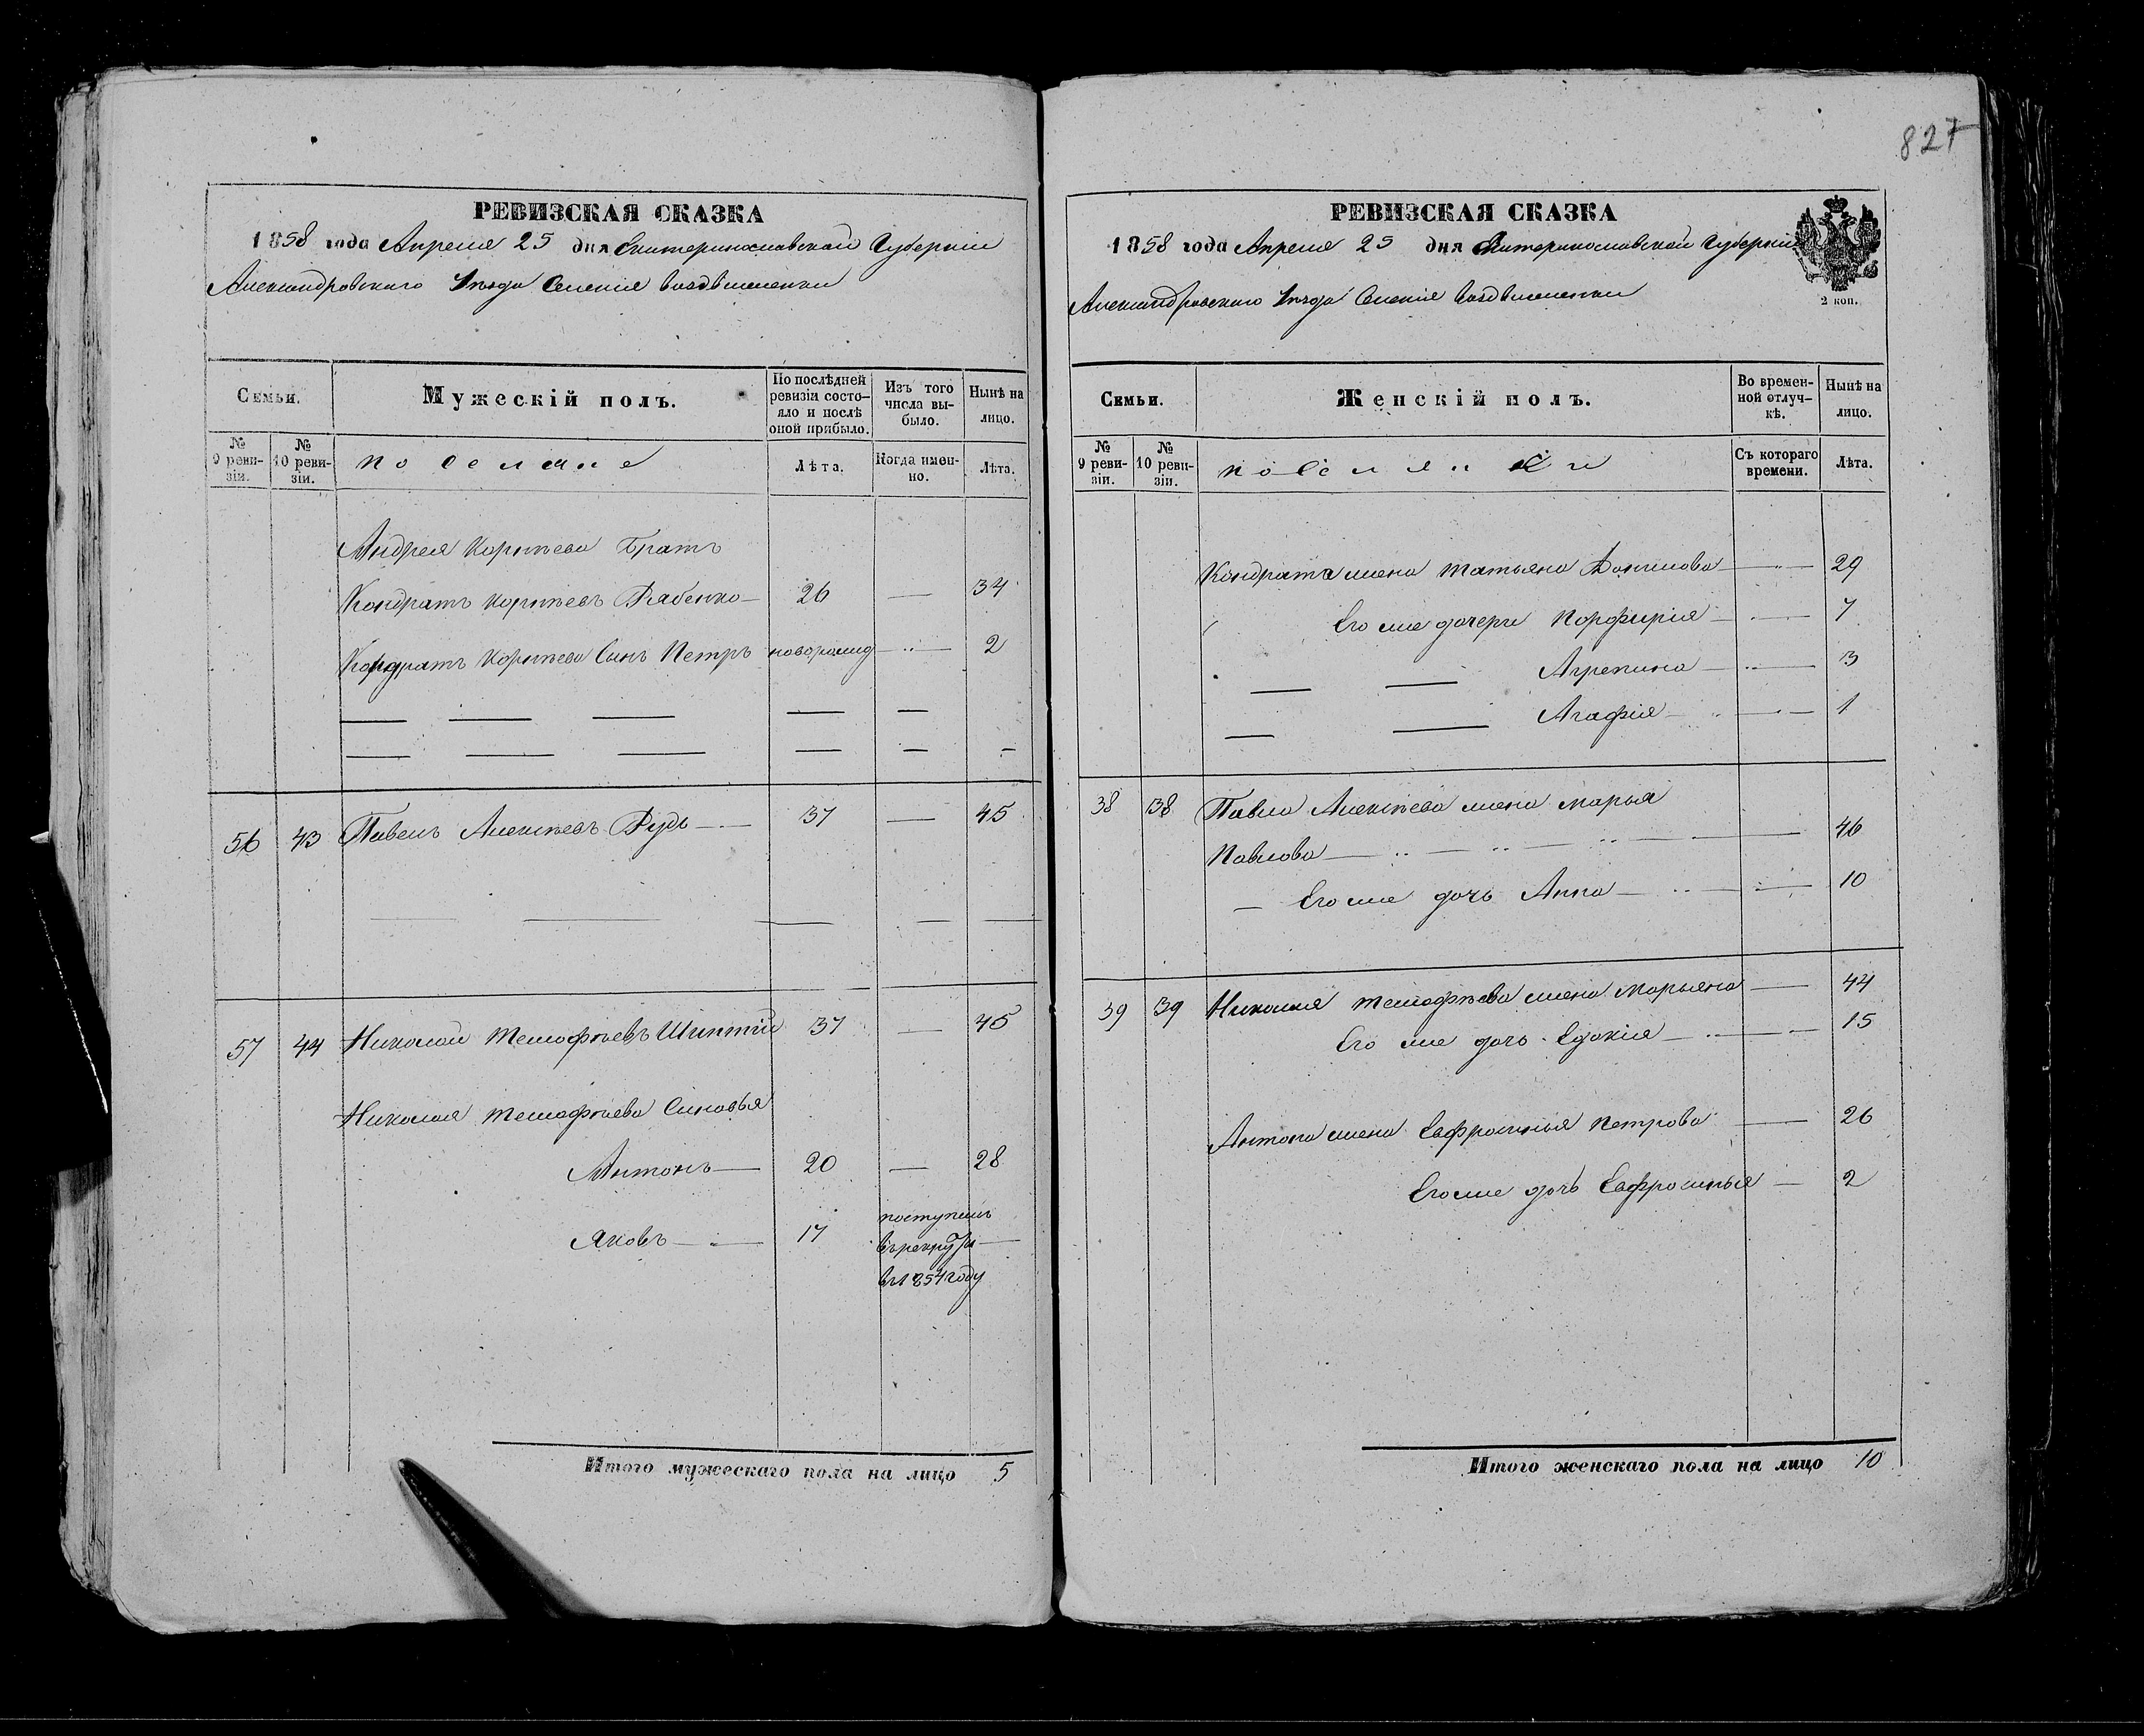 827
РЕВИЗСКАЯ СКАЗКА
1858 года Апреля 25 дня Екатеринославской Губернiи
Александровского Уезда Селенiя Воздвиженки
Семьи.
Мужескiй полъ.
По послѣдней ревизiи состояло и послѣ оной прибыло.
Изъ того числа выбыло.
Нынѣ на лицо.
№ 9 ревизiи.
№ 10 ревизiи.
поселяне
Лѣта.
Когда именно.
Лѣта.
Андрея Корнѣева Братъ
Кондратъ Корнѣевъ Рябенко 26 — 34
Кондратъ Корнѣева Сынъ Петръ наворожид — 2
56 43 Павелъ Алексѣевъ Рудь 37 — 45
57 44 Николай Темофѣевъ 37 — 45
Николая Темофѣева Синовья
Антонъ — 20 — 28
Яковъ — 17 поступилъ
въ рекруты —
въ 1854 году
Итого мужескаго пола на лицо 5
РЕВИЗСКАЯ СКАЗКА
1858 года Апреля 25 дня Екатеринославской Губернiи
Александровского Уезда Селенiя Воздвиженки
2 коп.
Семьи.
Женскiй полъ.
Во временной отлучкѣ.
Нынѣ на лицо.
№ 9 ревизiи.
№ 10 ревизiи.
поселянки
Съ котораго времени.
Лѣта.
Кондрата жена Татьяна — 29
Его же дочери Порфирiя — 7
Агрепина — 3
Агафiя — 1
38 38 Павла Алексѣева жена Марья
Павлова — 46
Его же дочь Анна — 10
39 39 Николая Темофѣева жена Марьяна — 44
Его же дочь Едокiя — 15
Антона жена Евфросинья Петрова — 26
Его же дочь Евфросинья — 2
Итого женскаго пола на лицо 10